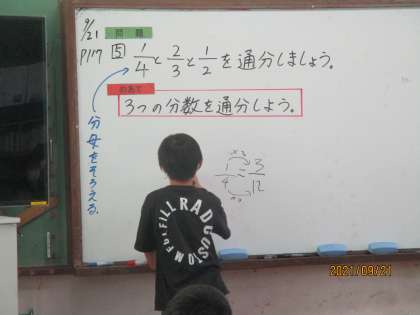 9/21
問題
P117 5 1/4と2/3と1/2を通分しましょう。
めあて
3つの分数を通分しよう。
分母をそろえる。
×3
1/4=3/12
×3
RAD
CUSTOM FULFILL
2021/09/21